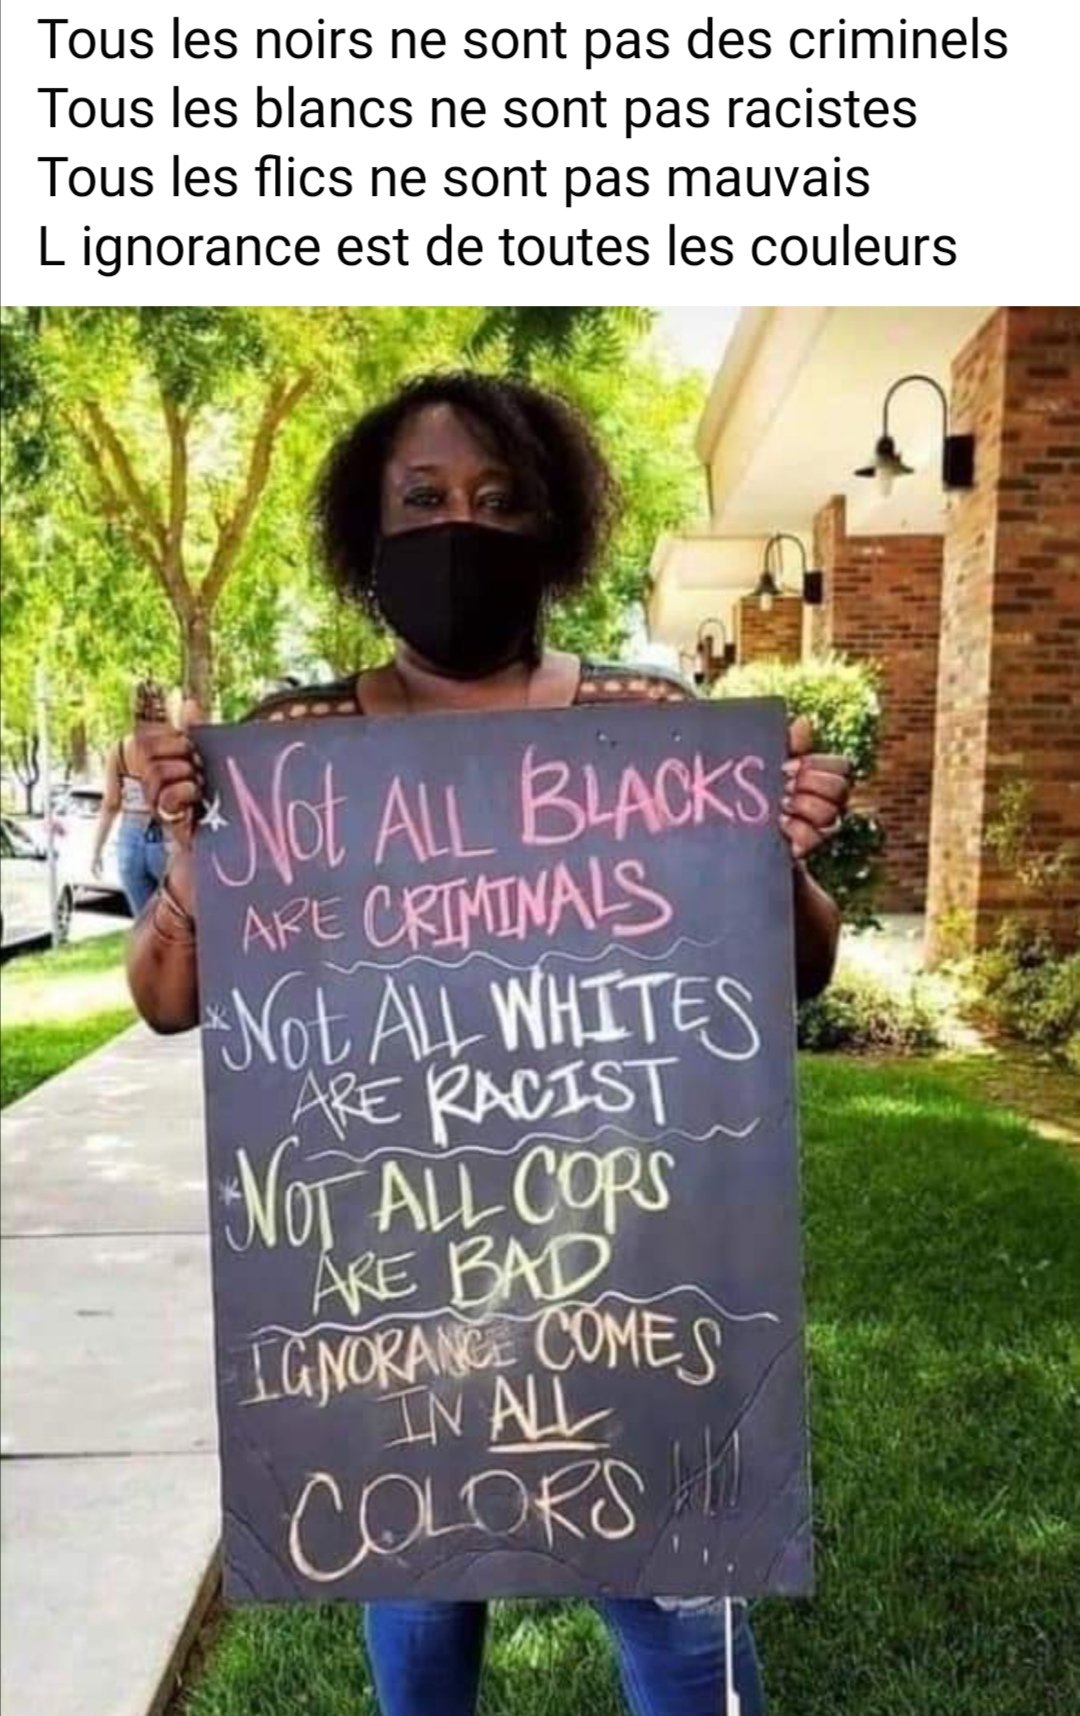 Tous les noirs ne sont pas des criminels
Tous les blancs ne sont pas racistes
Tous les flics ne sont pas mauvais
L ignorance est de toutes les couleurs
*NOt ALL BLACKS
ARE CRIMINALS
*NOt ALL WHITES
ARE RACIST
*NOT ALL COPS
ARE BAD
IGNORANCE COMES
IN ALL
COLORS !!!